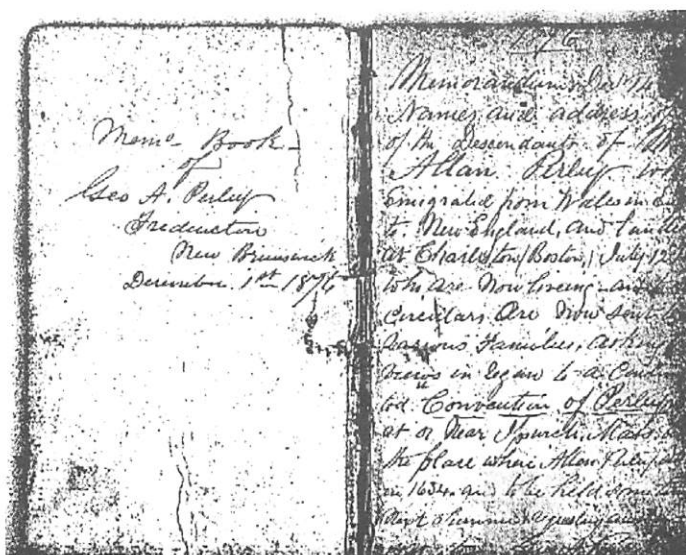 Memo Book
of
Geo A. Perley
Fredericton
New Brunswick
December 1st 1876
Memorandum
Names and address of
of the Descendants of
Allan Perley who
Emigrated from Wales in
to New England, and landed
at Charleston (Boston,) July 12
who are now living and
Circulars are now sent to
various Families, asking
views in regard to a
Convention of Perleys
at or Near Ipswich, Mass.
the place where Allan Perley
in 1634. and to be held
next Summer